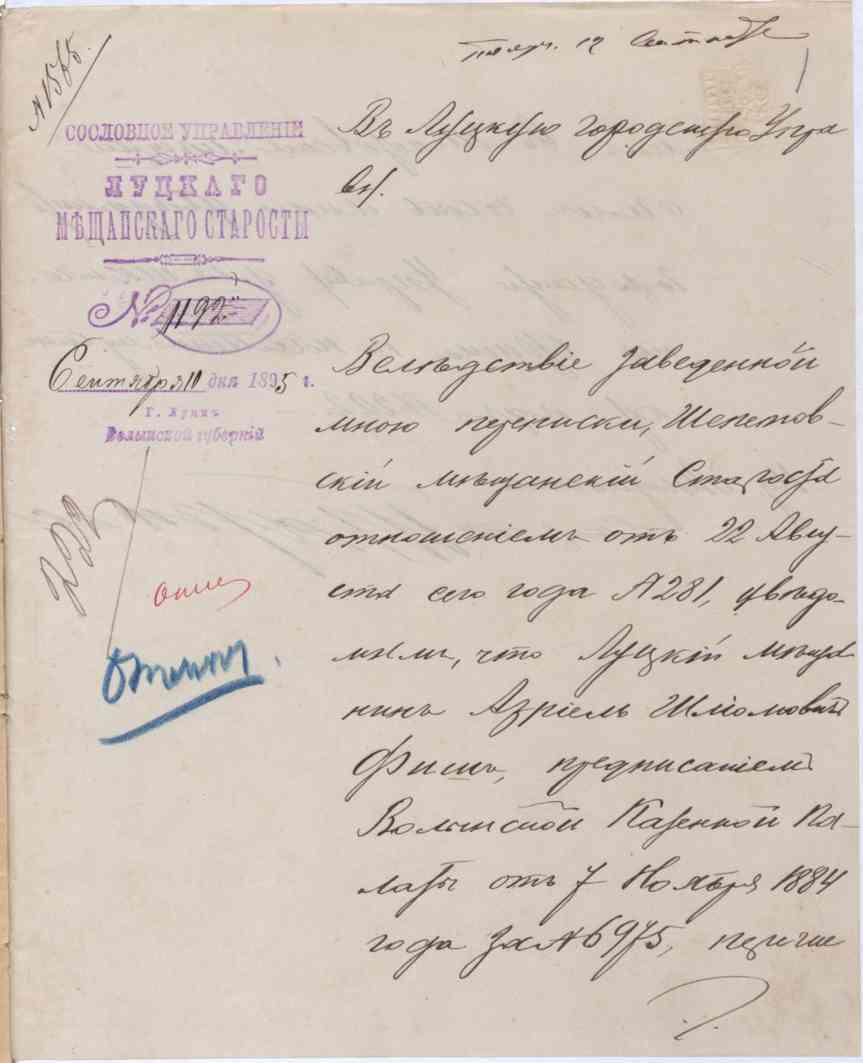 № 1565.
получ. 12 Сентября
СОСЛОВНОЕ УПРАВЛЕНІЕ
ЛУЦКАГО
МѢЩАНСКАГО СТАРОСТЫ
№ 1192
Сентября 10 дня 1895 г.
Г. Луцкъ
Волынской губерніи
222
Въ Луцкую городскую Упра
ву.
Вслѣдствіе заведенной
мною переписки, Шепетов-
скій мѣщанскій Староста
отношеніемъ отъ 22 Авгу-
ста сего года № 281, увѣдо-
милъ, что Луцкій мѣща
нинъ Азріель Шліомовичъ
Фишъ, предписаніемъ
Волынской Казенной Па-
латы отъ 7 Ноября 1884
года за № 6975, перечис